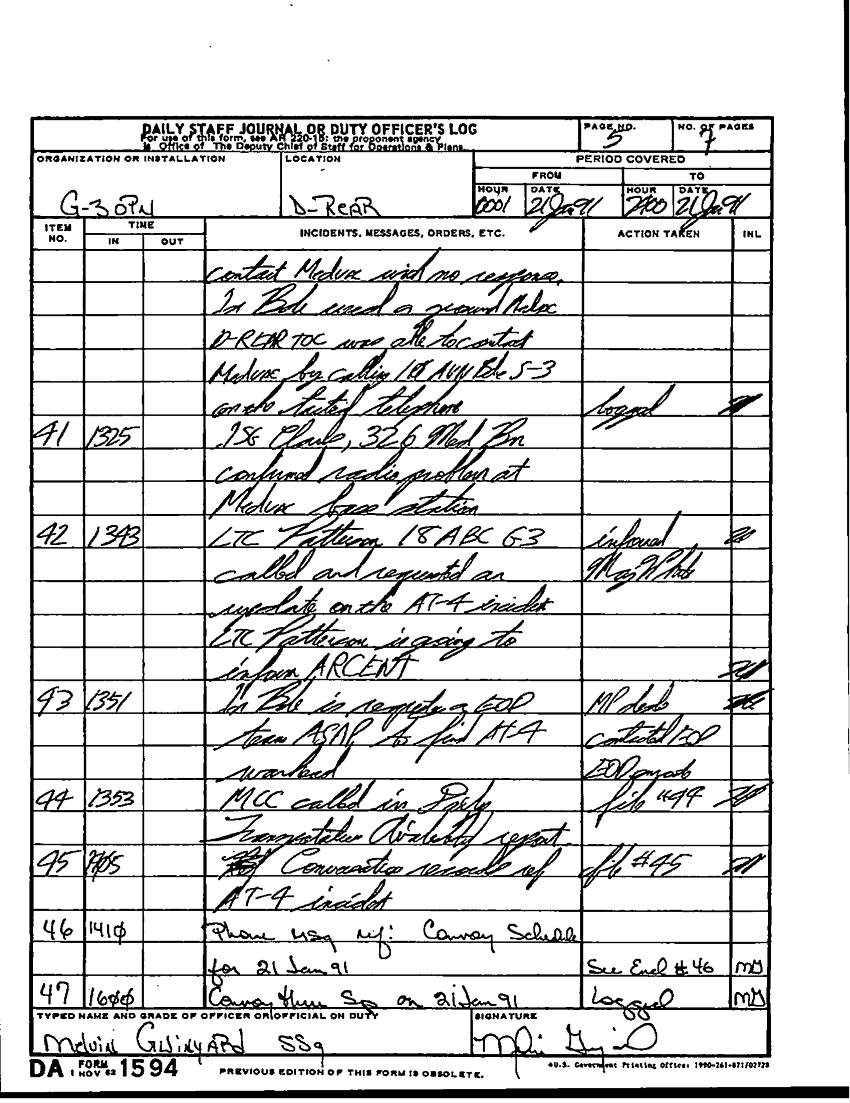 DAILY STAFF JOURNAL OR DUTY OFFICER'S LOG
For use of this form, see AR 220-15; the proponent agency
is Office of The Deputy Chief of Staff for Operations & Plans.
PAGE NO.
5
NO. OF PAGES
7
ORGANIZATION OR INSTALLATION
G-3 OPN
LOCATION
D-REAR
PERIOD COVERED
FROM
TO
HOUR
0001
DATE
21 Jan 91
HOUR
2400
DATE
21 Jan 91
ITEM NO.
TIME
IN
OUT
INCIDENTS, MESSAGES, ORDERS, ETC.
ACTION TAKEN
INL
contact Medvac with no response.
1st Bde used a ground
D-REAR TOC was able to contact
Medvac by calling 18 AVN Bde S-3
on the telephone logged
41 1325 1SG Clark, 326 Med Bn
confirmed radio problem at
Medvac base station
42 1343 LTC Patterson 18 ABC G3 informed
called and requested an Maj White
update on the AT-4 incident
LTC Patterson is going to
inform ARCENT
43 1351 1st Bde is requesting EOD MP desk
team ASAP to find AT-4 contacted EOD
warhead EOD
44 1353 MCC called in Daily file #44
Transportation Availability report.
45 1405 Conversation records ref #45
AT-4 incident
46 1410 Phone msg ref: Convoy Schedule
for 21 Jan 91 See Encl #46 MG
47 1600 Convoy thru Sp on 21 Jan 91 Logged MG
TYPED NAME AND GRADE OF OFFICER OR OFFICIAL ON DUTY
Melvin GWINYARD SSg
SIGNATURE
DA FORM 1 NOV 62 1594
PREVIOUS EDITION OF THIS FORM IS OBSOLETE.
U.S. Government Printing Office: 1990-261-871/02728